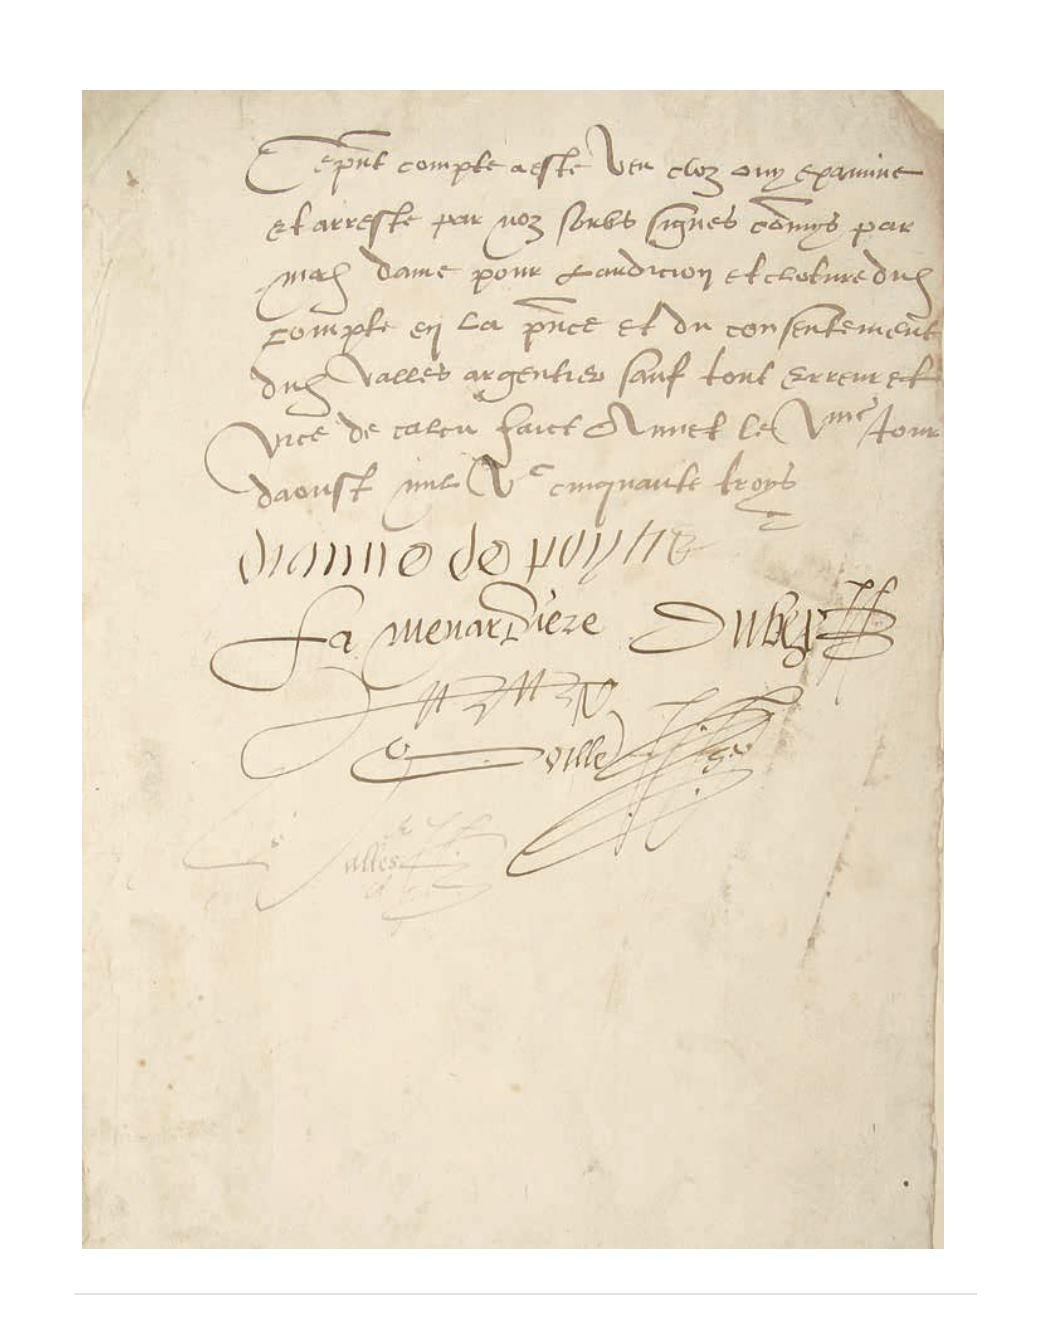 Ce pnt compte a este veu cloz ouy examine
et arreste par noz soubs signes comys par
mad dame pour laudicion et cloture dud
compte en la pnce et du consentement
dud Valles argentier sauf tout erreur et
vice de calcu faict Annet le Vme Jour
daoust mil Vc cinquante troys
dianne de poytie
La menardiere
ville
Valles